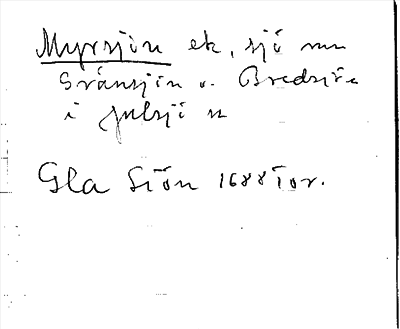 Myrsjön ek, sjö nu
Svänsjön o. Bredsjön
i Julsjö sn
Gla Siön 1688 Tor.